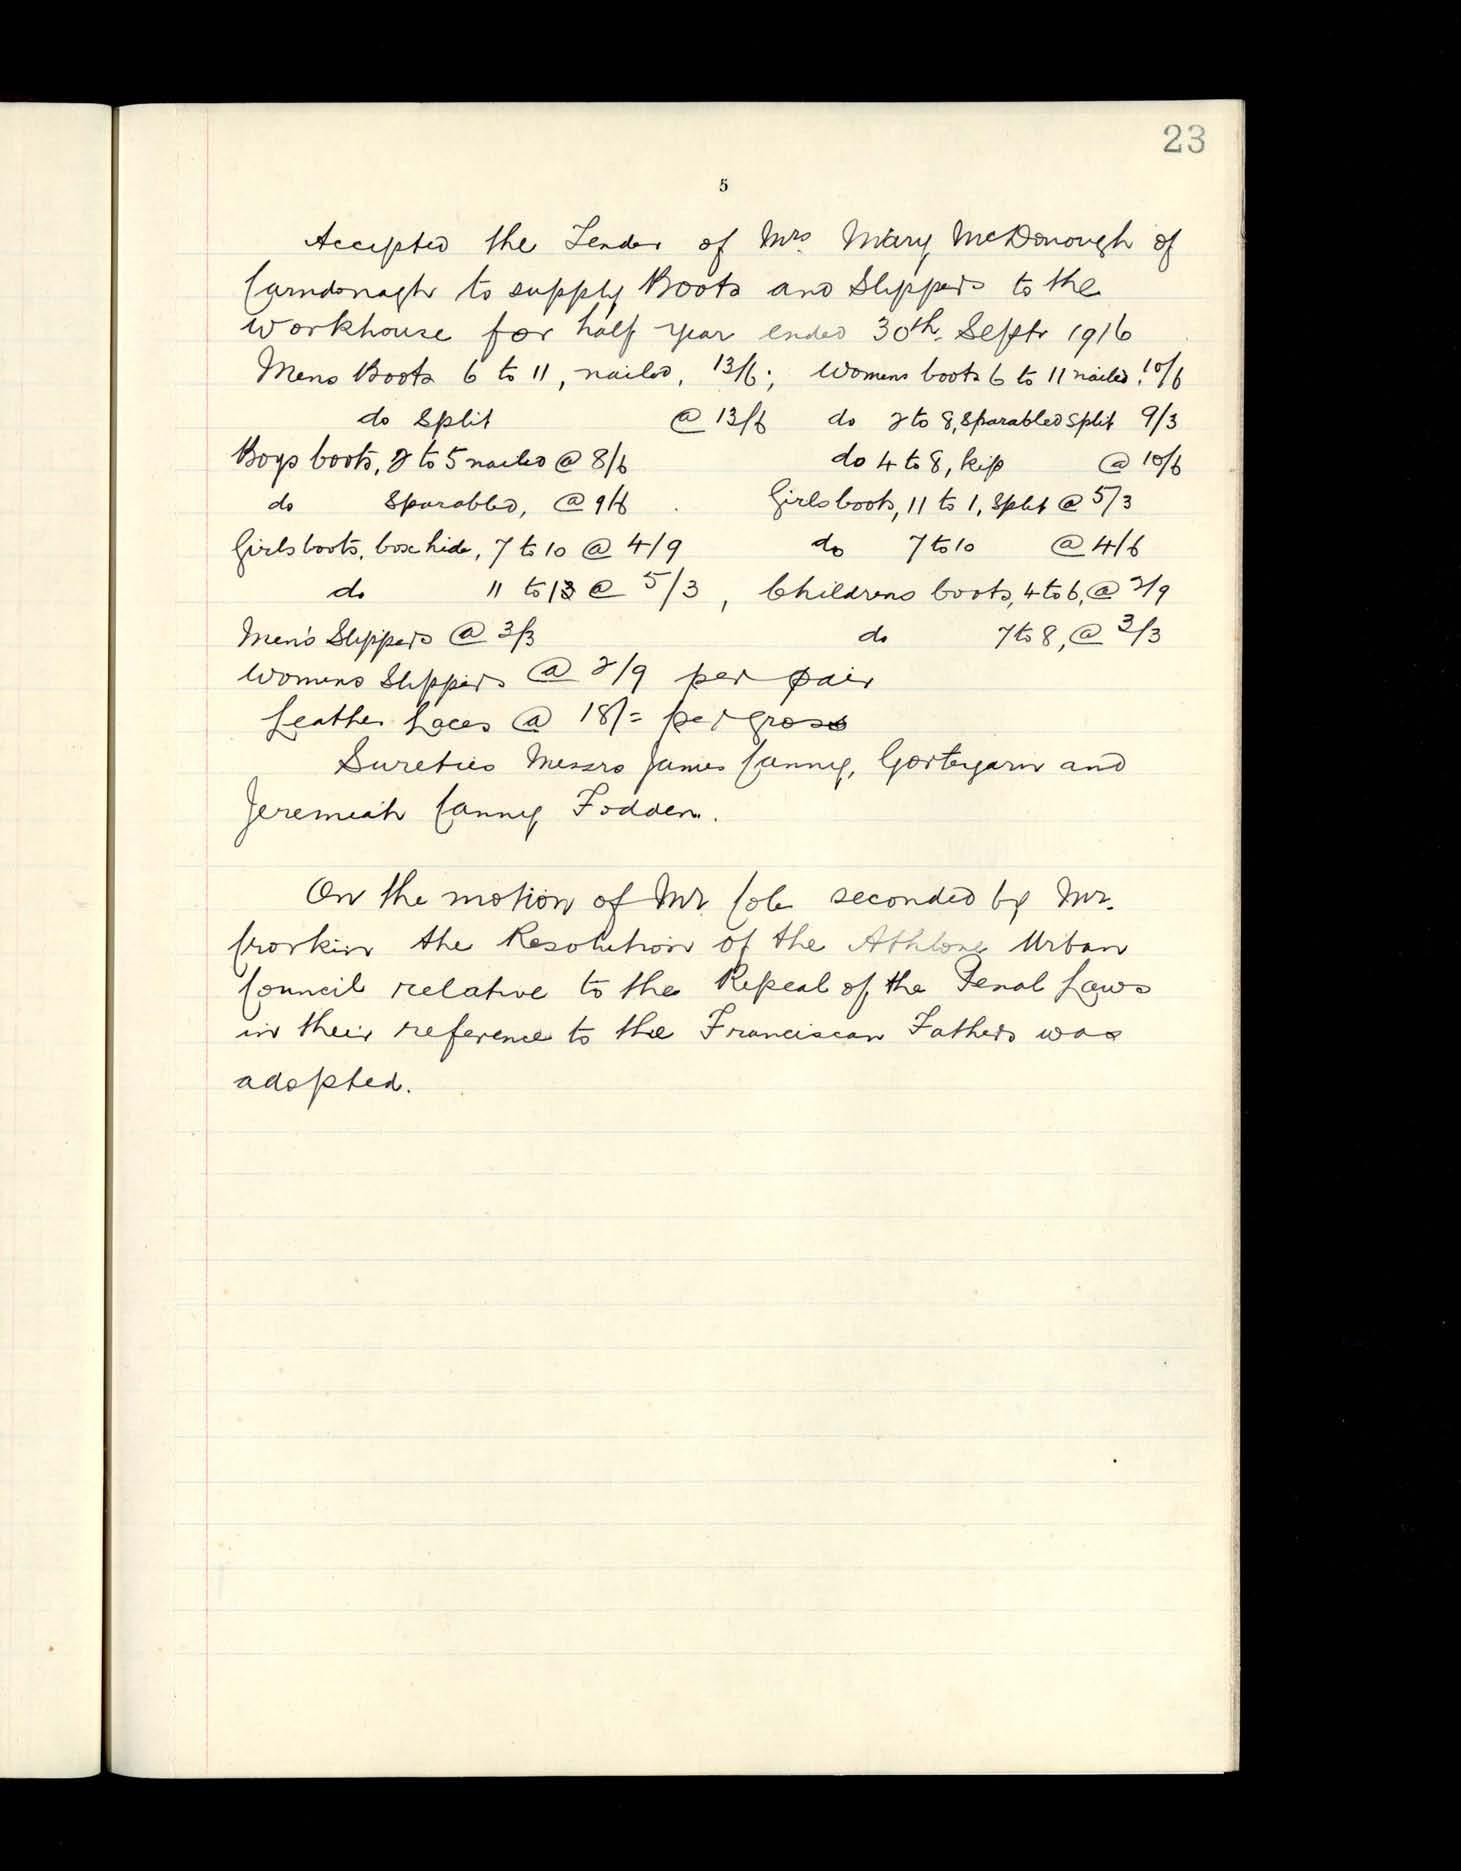 23
5
Accepted the Tender of Mrs Mary McDonough of
Carndonagh to supply Boots and Slippers to the
workhouse for half year ended 30th. Septr 1916
Mens Boots 6 to 11, nailed, 13/6; Womens boots 6 to 11 nailed, 10/6
do Split @ 13/6 do 2 to 8, Sparabled split 9/3
Boys boots, 2 to 5 nailed @ 8/6 do 4 to 8, kip @ 10/6
do Sparabled, @ 9/6 Girls boots, 11 to 1, Split @ 5/3
Girls boots, box hide, 7 to 10 @ 4/9 do 7 to 10 @ 4/6
do 11 to 13 @ 5/3, Childrens boots, 4 to 6, @ 2/9
Men's Slippers @ 3/3 do 7 to 8, @ 3/3
Womens Slippers @ 2/9 per pair
Leather Laces @ 18/= per gross
Sureties Messrs James Canny, Gorteyarn and
Jeremiah Canny Fodden.
On the motion of Mr. seconded by Mr.
the Resolution of the Athlone Urban
Council relative to the Repeal of the Penal Laws
in their reference to the Franciscan Fathers was
adopted.